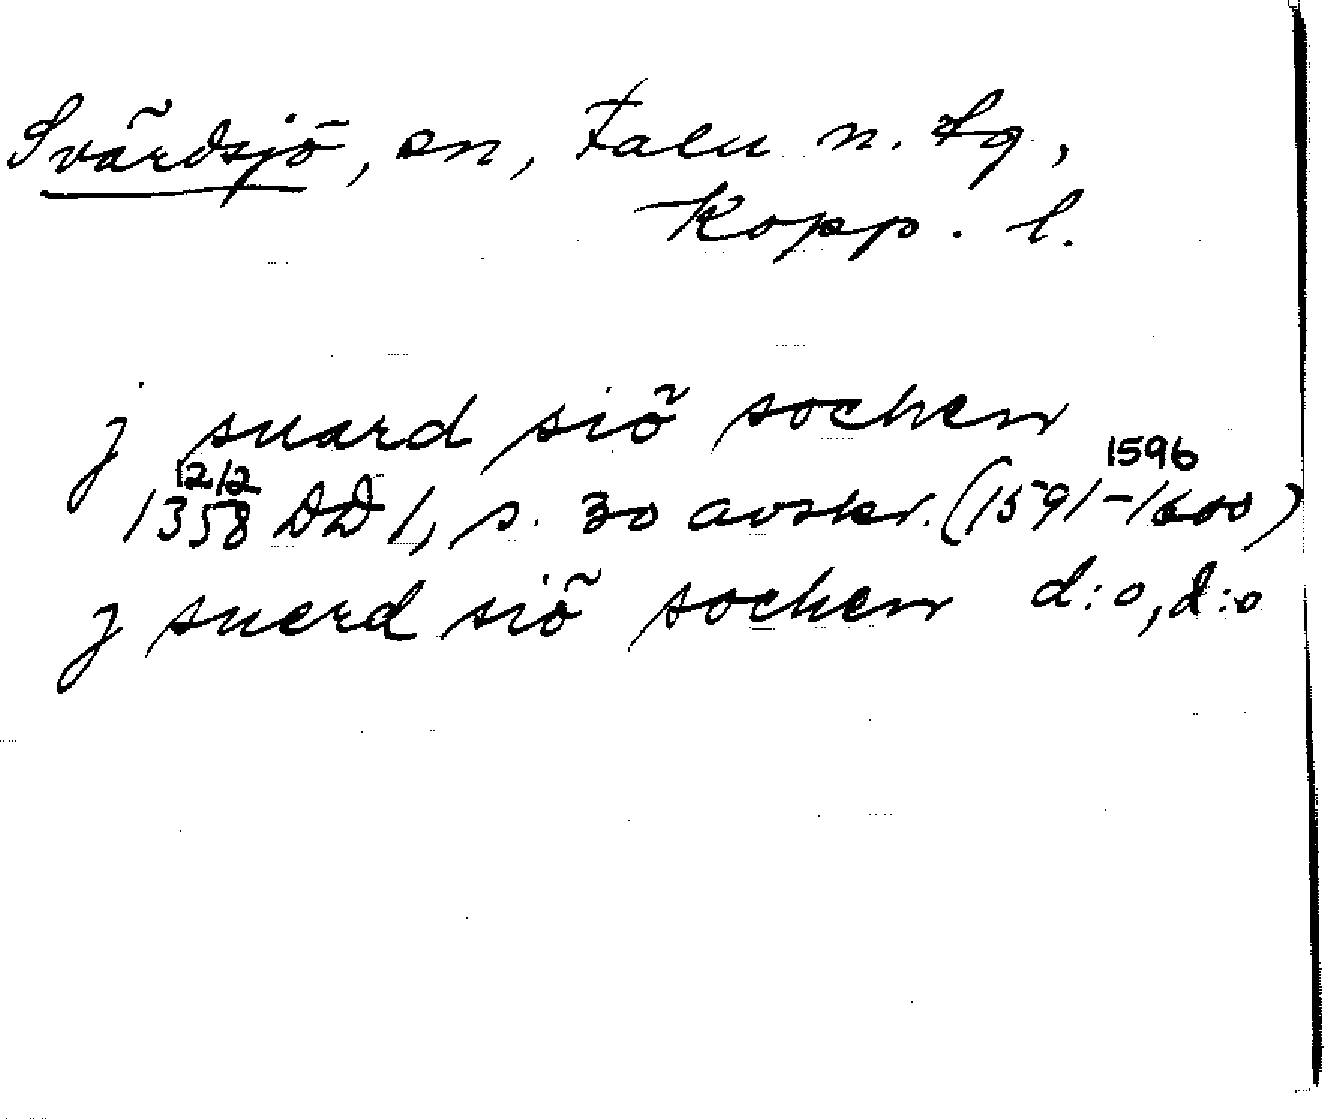 Svärdsjö, sn, Falu n. tg,
Kopp. l.
j suard siö sochen
12/2 1596
1358 DD 1, s. 30 avskr. (1591-1600)
j suerd siö sochen d:o, d:o